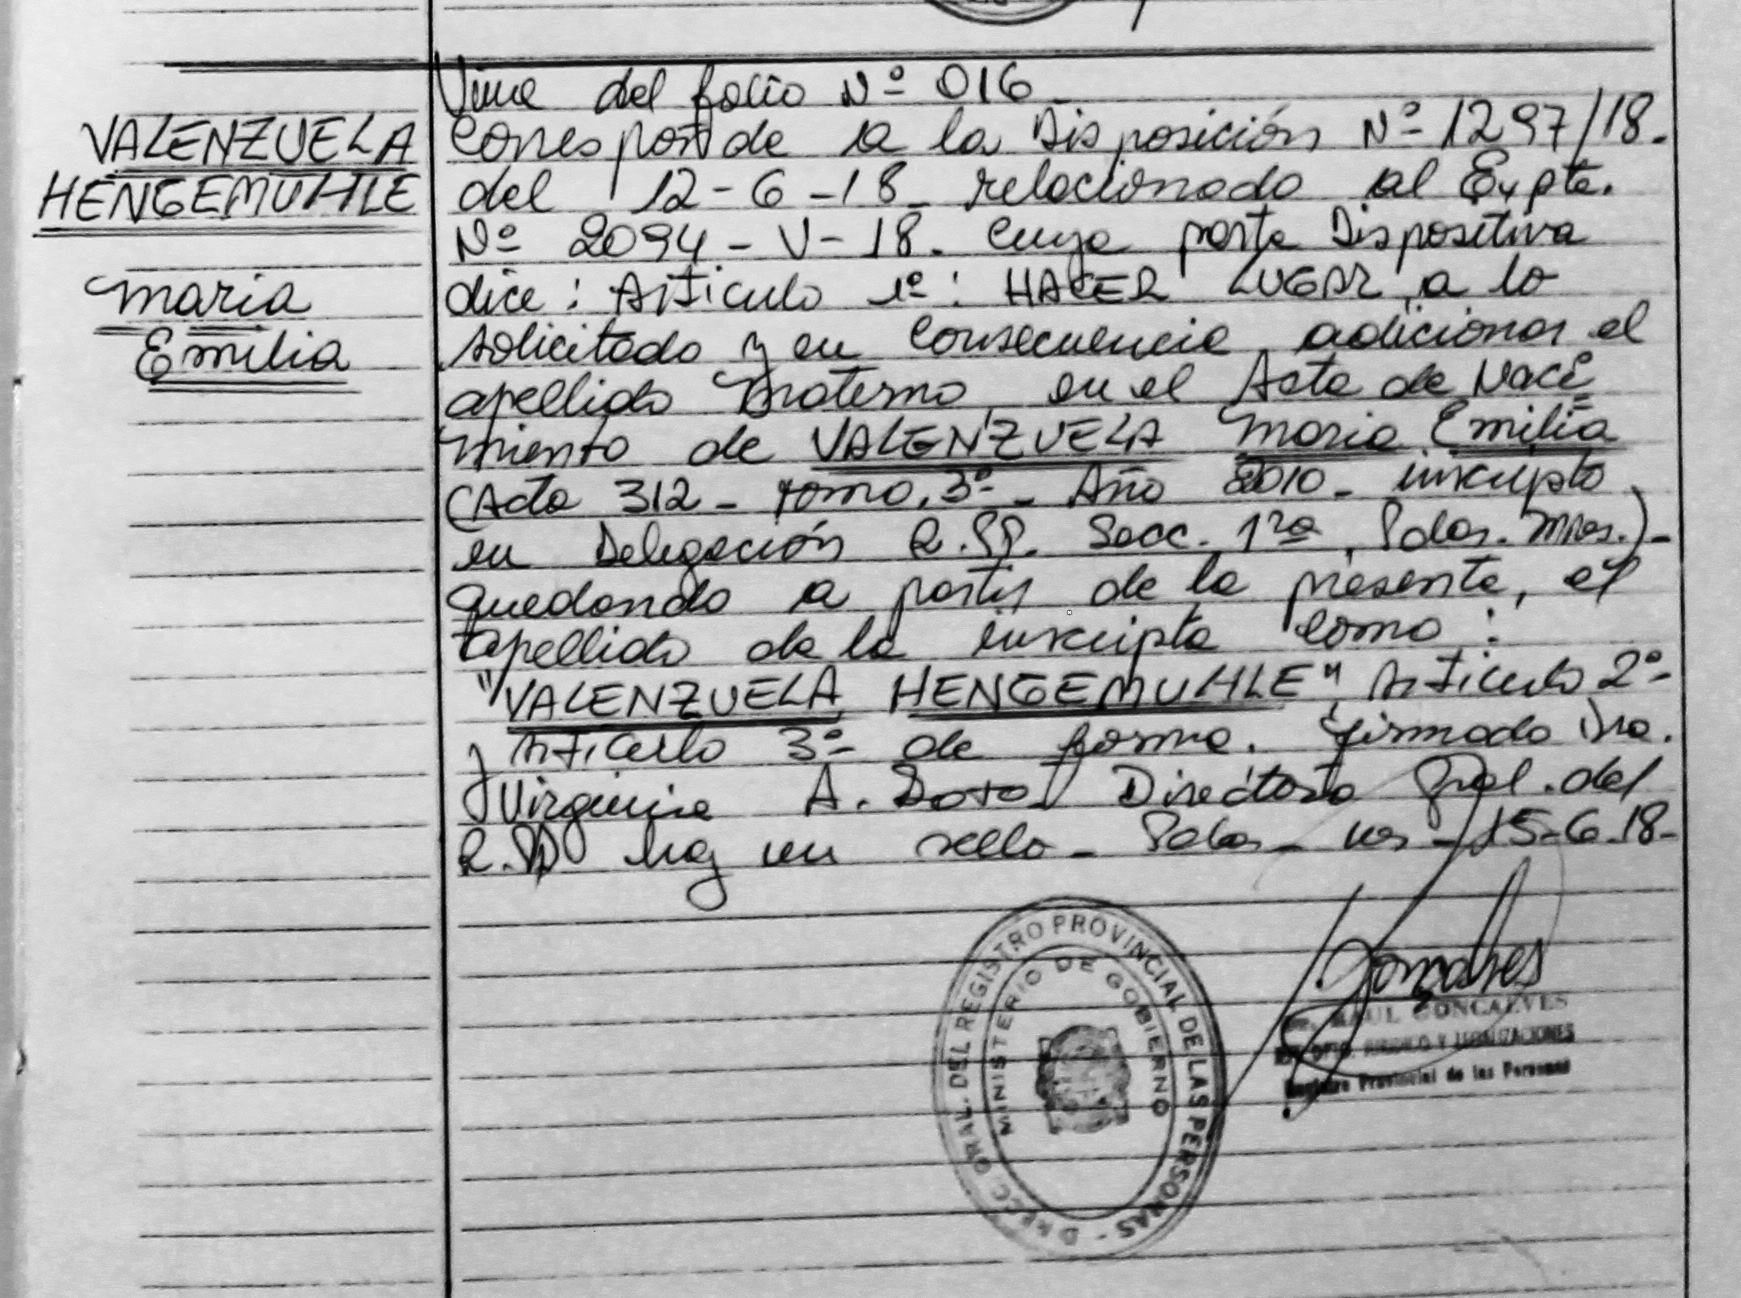 Viene del folio Nº 016
VALENZUELA
HENGEMUHLE
Maria
Emilia
Corresponde a la Disposición Nº 1297/18.
del 12-6-18 relacionado al Expte.
Nº 2094-V-18. Cuya parte Dispositiva
dice: Articulo 1º: HACER LUGAR a lo
solicitado y en Consecuencia adicionar el
apellido Materno en el Acta de Naci
miento de VALENZUELA Maria Emilia
(Acta 312 - Tomo 3º - Año 2010 - inscripta
en Delegación R.PP. Secc. 1ra, Pdas. Mnes.)-
quedando a partir de la presente, el
apellido de la inscripta Como:
"VALENZUELA HENGEMUHLE" Articulo 2º-
y Articulo 3º- de forma. firmado Dra.
Virginia A. Directora Gral. del
R.PP hay un sello - Pdas - 15-6-18-
DIRECC. GRAL. DEL REGISTRO PROVINCIAL DE LAS PERSONAS -
MINISTERIO DE GOBIERNO
RAUL GONCALVES
JURIDICO Y LEGALIZACIONES
Registro Provincial de las Personas